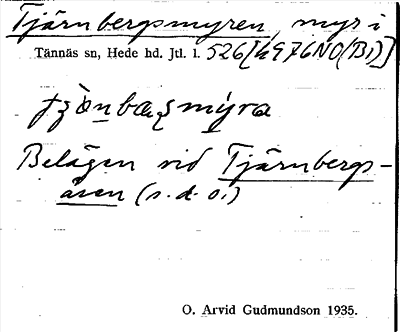 Tjärnbergsmyren, myr i
Tännäs sn, Hede hd. Jtl. l. 526[4976NO(Bi)]
Belägen vid Tjärnbergs-
åsen (s.d.o.)
O. Arvid Gudmundson 1935.